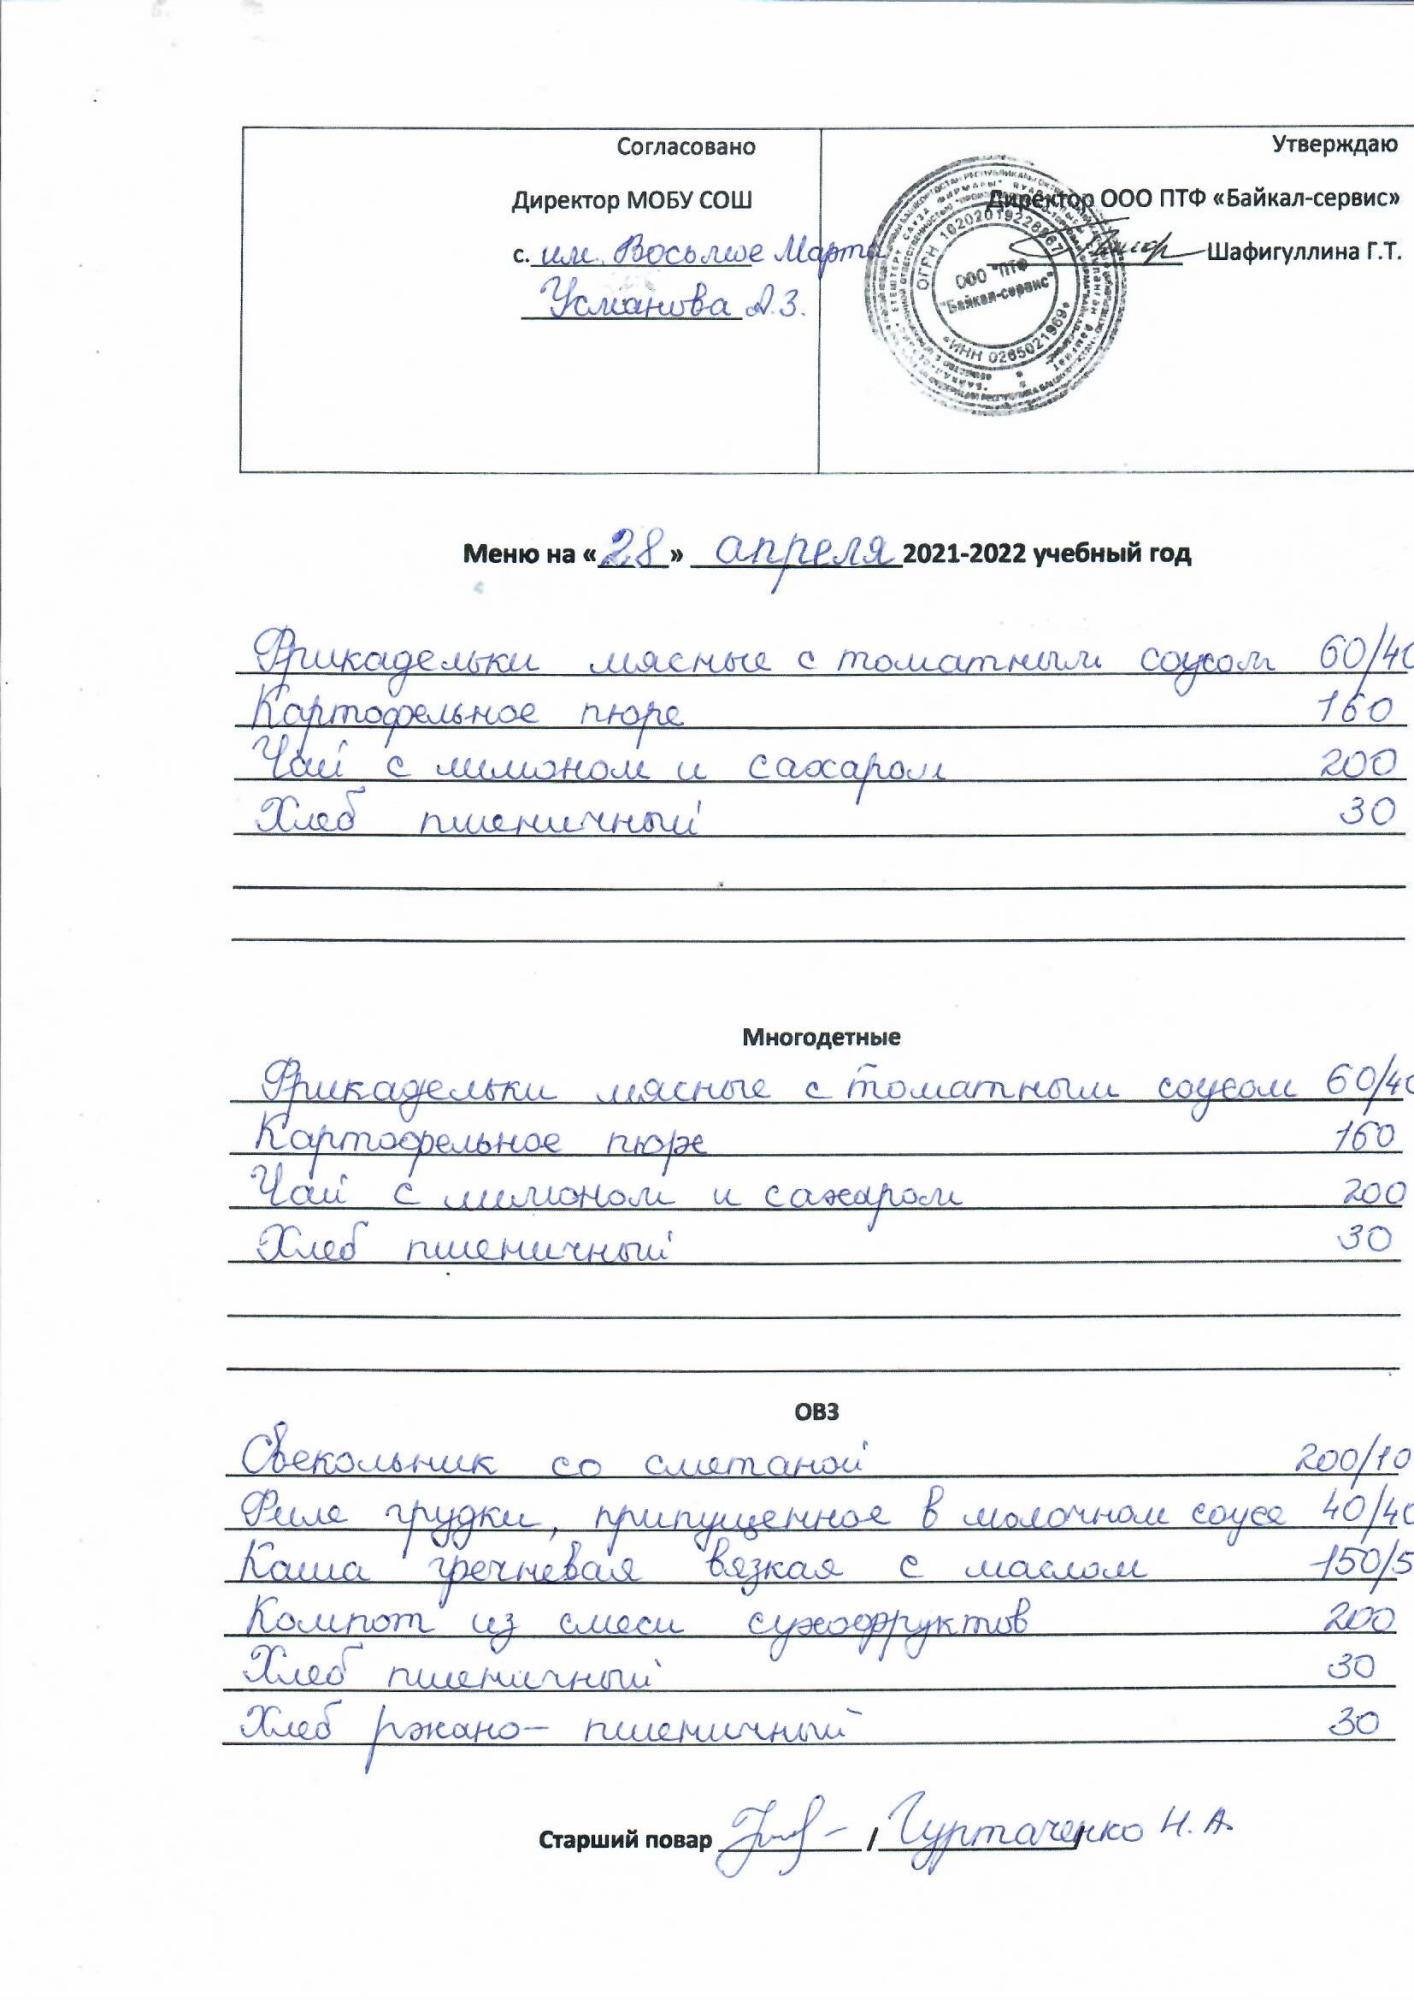 Согласовано
Директор МОБУ СОШ
с. им. Восьмое Марта
Усманова А.З.
Утверждаю
Директор ООО ПТФ «Байкал-сервис»
Шафигуллина Г.Т.
ООО "ПТФ
"Байкал-сервис"
ИНН 0265021969
Меню на «28» апреля 2021-2022 учебный год
Фрикадельки мясные с томатным соусом 60/40
Картофельное пюре 160
Чай с лимоном и сахаром 200
Хлеб пшеничный 30
Многодетные
Фрикадельки мясные с томатным соусом 60/40
Картофельное пюре 160
Чай с лимоном и сахаром 200
Хлеб пшеничный 30
ОВЗ
Свекольник со сметаной 200/10
Филе грудки, припущенное в молочном соусе 40/40
Каша гречневая вязкая с маслом 150/5
Компот из смеси сухофруктов 200
Хлеб пшеничный 30
Хлеб ржано- пшеничный 30
Старший повар / Гуртаченко Н. А.